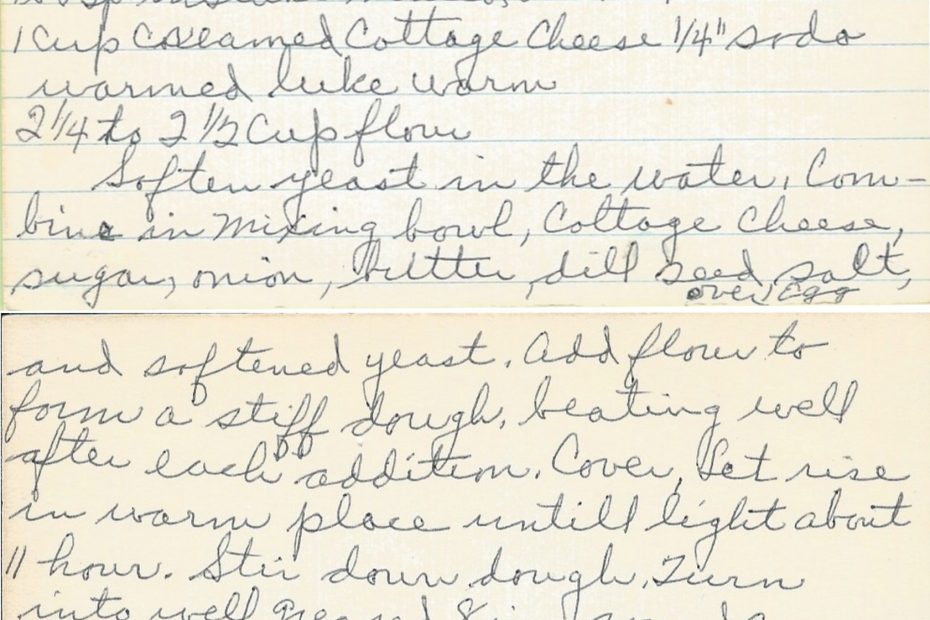 1 Cup Creamed Cottage Cheese 1/4" soda
warmed luke warm
2 1/4 to 2 1/2 Cup flour
Soften yeast in the water, Com-
bine in mixing bowl, Cottage Cheese,
sugar, onion, butter, dill seed, salt,
over Egg
and softened yeast. Add flour to
form a stiff dough, beating well
after each addition. Cover, Let rise
in warm place untill light about
11 hour. Stir down dough. Turn
into well greased 8 in